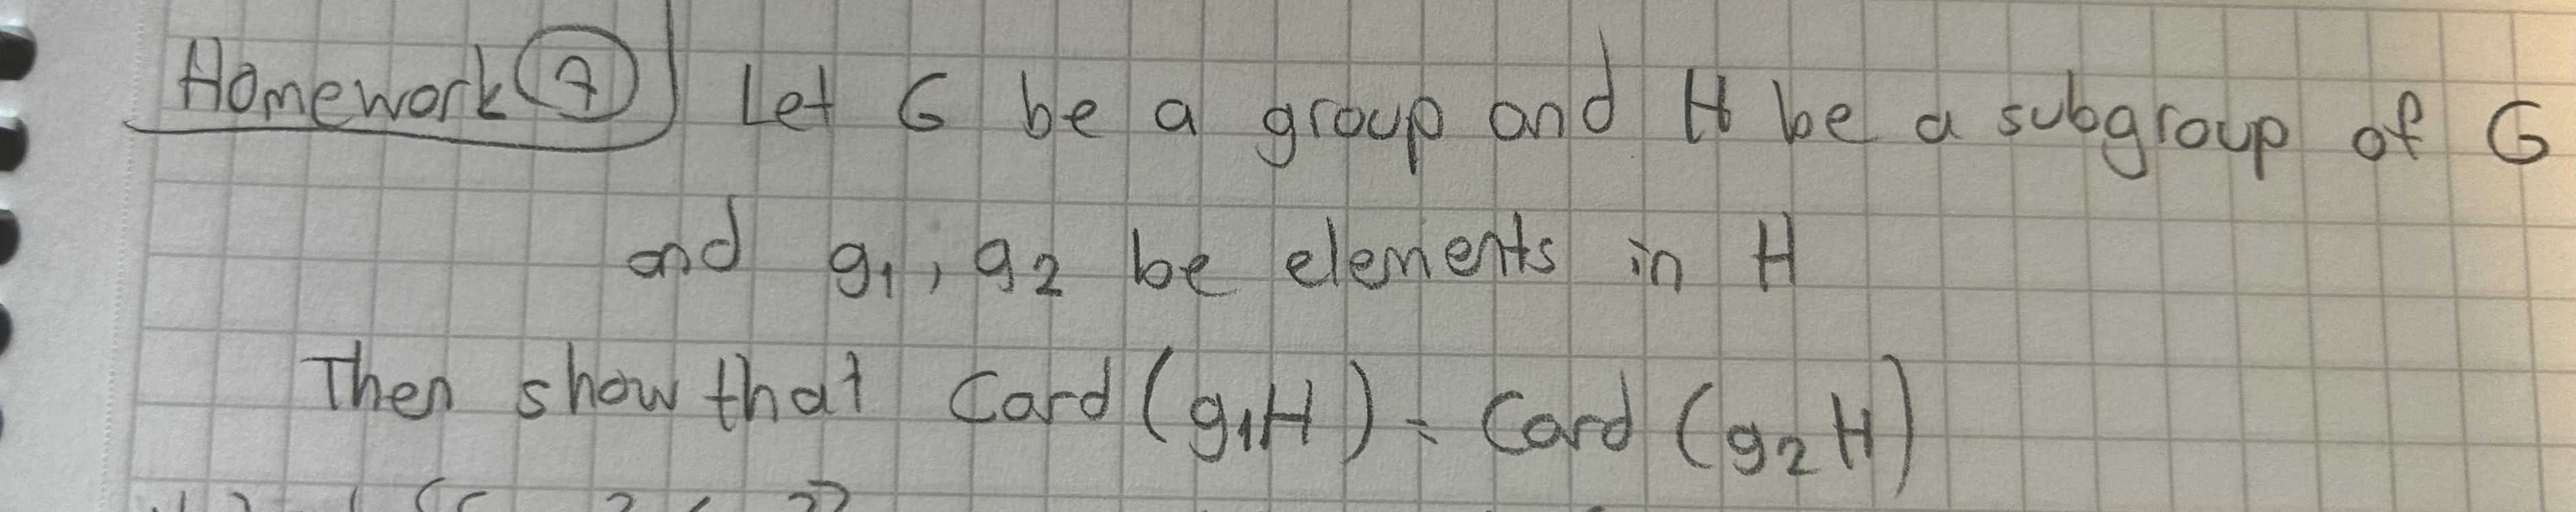 Homework 7 Let G be a group and H be a subgroup of G
and g₁, g₂ be elements in H
Then show that Card (g₁H) = Card (g₂H)